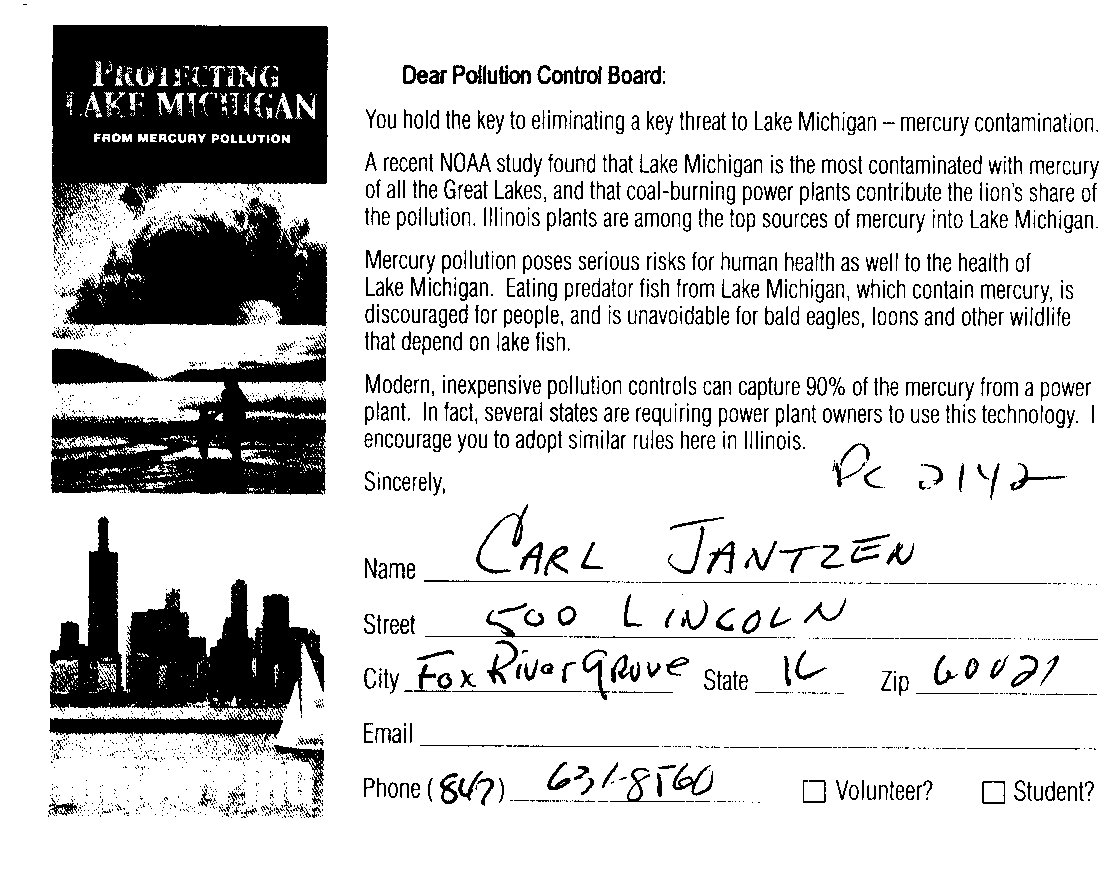 PROTECTING
LAKE MICHIGAN
FROM MERCURY POLLUTION
Dear Pollution Control Board:
You hold the key to eliminating a key threat to Lake Michigan – mercury contamination.
A recent NOAA study found that Lake Michigan is the most contaminated with mercury
of all the Great Lakes, and that coal-burning power plants contribute the lion's share of
the pollution. Illinois plants are among the top sources of mercury into Lake Michigan.
Mercury pollution poses serious risks for human health as well to the health of
Lake Michigan. Eating predator fish from Lake Michigan, which contain mercury, is
discouraged for people, and is unavoidable for bald eagles, loons and other wildlife
that depend on lake fish.
Modern, inexpensive pollution controls can capture 90% of the mercury from a power
plant. In fact, several states are requiring power plant owners to use this technology. I
encourage you to adopt similar rules here in Illinois.
PC 2142
Sincerely,
Name CARL JANTZEN
Street 500 LINCOLN
City Fox River Grove State IL Zip 60021
Email
Phone (847) 631-8560 Volunteer? Student?